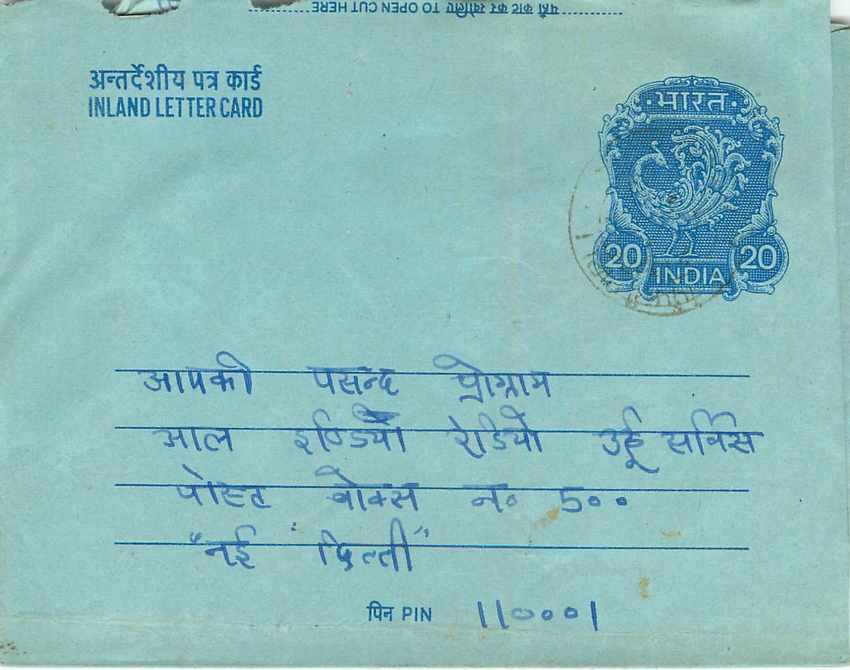 यहाँ काट कर खोलिए TO OPEN CUT HERE
अन्तर्देशीय पत्र कार्ड
INLAND LETTER CARD
भारत
20 20
INDIA
आपकी पसन्द प्रोग्राम
आल इण्डिया रेडियो उर्दू सर्विस
पोस्ट बोक्स न० 5००
"नई दिल्ली"
पिन PIN 110001